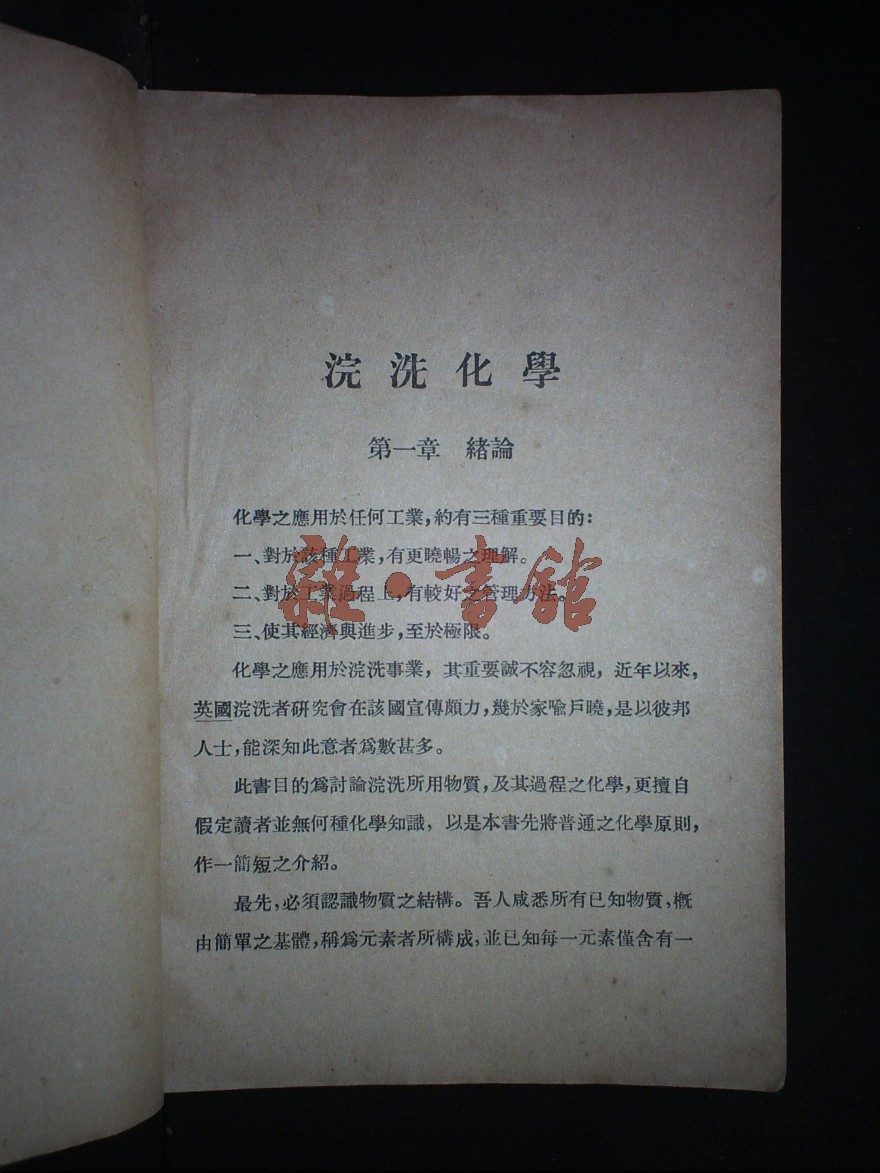 浣洗化學
第一章 緒論
化學之應用於任何工業,約有三種重要目的:
一、對於該種工業,有更曉暢之理解。
二、對於工業過程上,有較好之管理方法。
三、使其經濟與進步,至於極限。
化學之應用於浣洗事業,其重要誠不容忽視,近年以來,
英國浣洗者研究會在該國宣傳頗力,幾於家喩戶曉,是以彼邦
人士,能深知此意者爲數甚多。
此書目的爲討論浣洗所用物質,及其過程之化學,更擅自
假定讀者並無何種化學知識,以是本書先將普通之化學原則,
作一簡短之介紹。
最先,必須認識物質之結構。吾人咸悉所有已知物質、槪
由簡單之基體,稱爲元素者所構成,並已知每一元素僅含有一
雜·書館